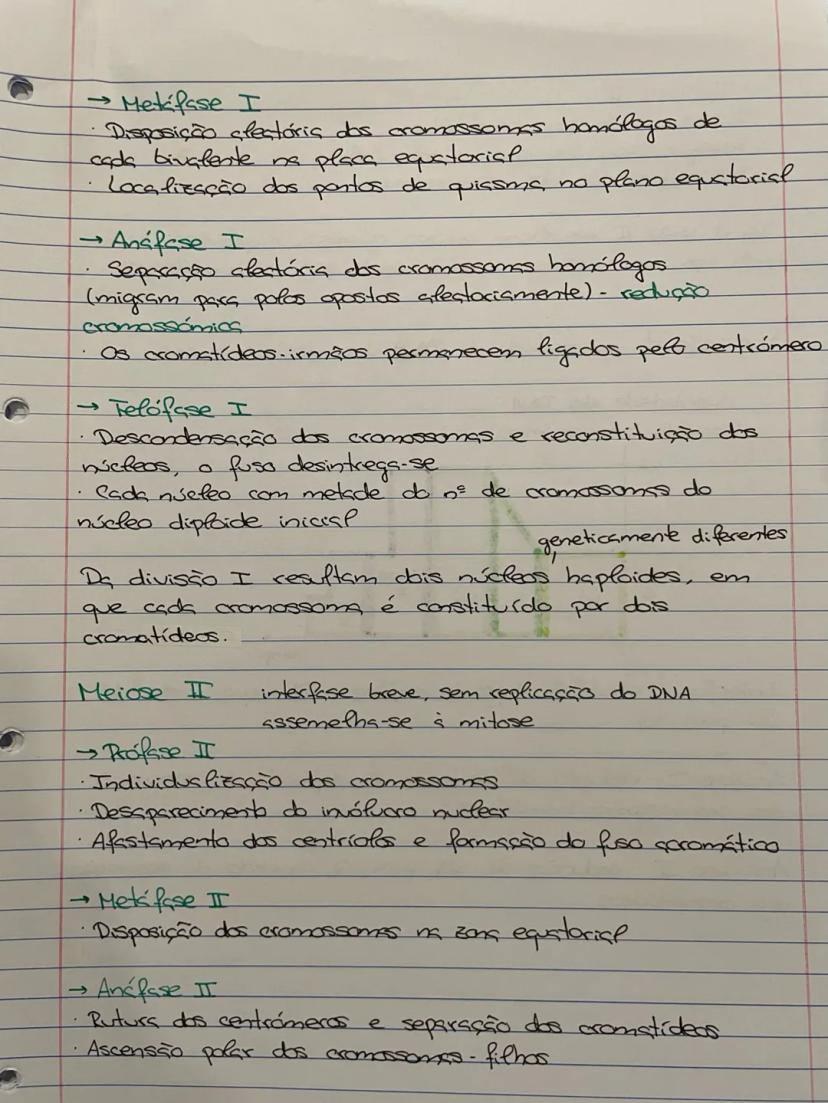 → Metáfase I
· Disposição aleatória dos cromossomas homólogos de
cada bivalente na placa equatorial
· Localização dos pontos de quiasma, no plano equatorial
→ Anáfase I
· Separação aleatória dos cromossomas homólogos
(migram para polos opostos aleatoriamente) - redução
cromossómica
· Os cromatídeos-irmãos permanecem ligados pelo centrómero
→ Telófase I
· Descondensação dos cromossomas e reconstituição dos
núcleos, o fuso desintrega-se
· Cada núcleo com metade do nº de cromossomas do
núcleo diploide inicial
geneticamente diferentes
Da divisão I resultam dois núcleos, haploides, em
que cada cromossoma, é constituído por dois
cromatídeos.
Meiose II interfase breve, sem replicação do DNA
assemelha-se à mitose
→ Prófase II
· Individualização dos cromossomas
· Desaparecimento do invólucro nuclear
· Afastamento dos centríolos e formação do fuso acromático
→ Metáfase II
· Disposição dos cromossomas na zona equatorial
→ Anáfase II
· Rutura dos centrómeros e separação dos cromatídeos
· Ascensão polar dos cromossomas-filhos